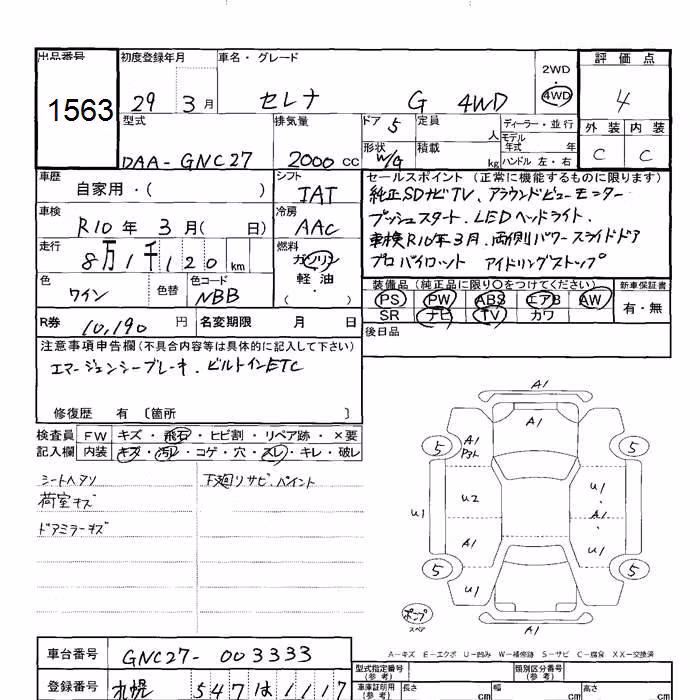 出品番号 初度登録年月 車名・グレード 2WD 評価点
1563 29年3月 セレナ G 4WD 4WD 4
型式 排気量 ドア 5 定員 人 ディーラー・並行 外装 内装
DAA-GNC27 2000cc 形状 W/G 積載 kg モデル年式 年 ハンドル 左・右 C C
車歴 シフト セールスポイント（正常に機能するものに限ります）
自家用・( ) IAT 純正SDナビTV、アラウンドビューモニター
車検 冷房 プッシュスタート、LEDヘッドライト、
R10年3月( 日) AAC 車検R10年3月、両側パワースライドドア
走行 燃料 プロパイロット アイドリングストップ
8万1千120km ガソリン 軽油・( )
色 色替 色コード 装備品（純正品に限り○をつけてください） 新車保証書
ワイン NBB PS PW ABS エアB AW 有・無
R券 10,190円 名変期限 月 日 SR ナビ TV カワ
後日品
注意事項申告欄（不具合内容等は具体的に記入して下さい）
エマージェンシーブレーキ、ビルトインETC
修復歴 有 〔箇所 〕
検査員 FW キズ・飛石・ヒビ割・リペア跡・×要
記入欄 内装 キズ・汚レ・コゲ・穴・スレ・キレ・破レ
シートヘタリ 下廻リサビ、ペイント
荷室キズ
ドアミラーキズ
A1
A1
5 A1 5
U2 U1
U1 A1 U1
A1 U1
5 U1 5
スペア A1
A－キズ E－エクボ U－凹み W－補修跡 S－サビ C－腐食 XX－交換済
車台番号 GNC27-003333 型式指定番号（参考） 類別区分番号（参考）
登録番号 札幌 547 は 1117 車庫証明用（参考） 長さ cm 幅 cm 高さ cm